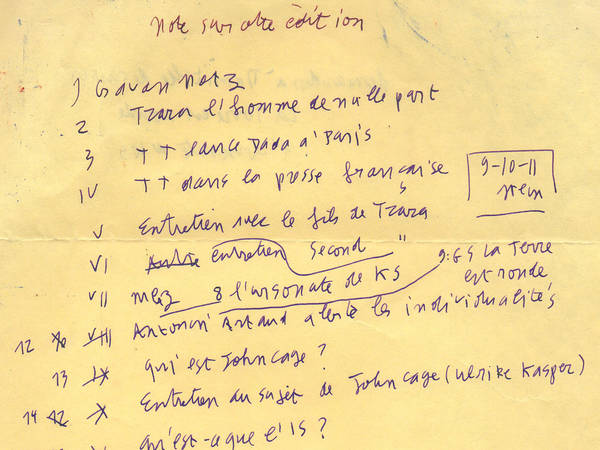 Note sur cette édition
1) Gavan Notz
2 Tzara l'homme de nulle part
3 TT lance Dada à Paris
IV TT dans la presse française
9-10-11
Stein
V Entretien avec le fils de Tzara
VI entretien second "
9: GS La Terre est ronde
VII 8 l'ursonate de KS
12 VIII Antonin Artaud les individualités
13 IX qui est John Cage ?
14 12 X Entretien au sujet de John Cage (Ulrike Kasper)
qu'est-ce que l'IS ?